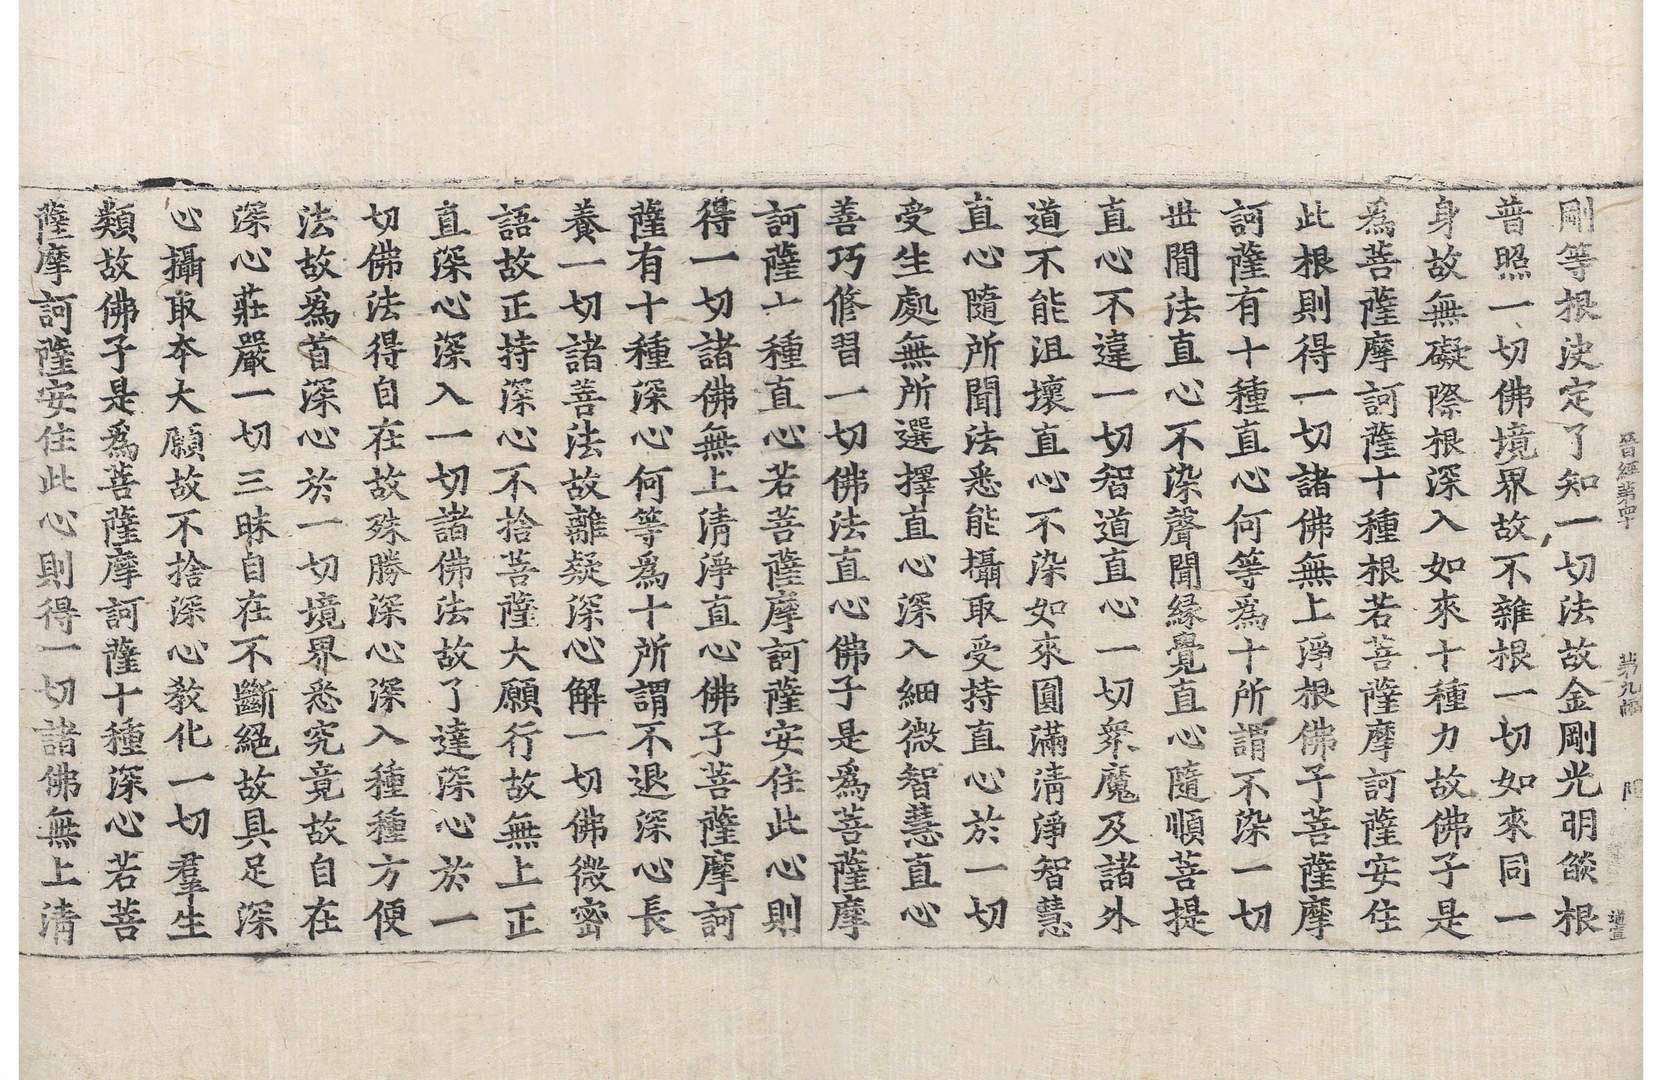 晉經第四十 第九幅 道宣
剛等根決定了知一切法故金剛光明燄根
普照一切佛境界故不雜根一切如來同一
身故無礙際根深入如來十種力故佛子是
爲菩薩摩訶薩十種根若菩薩摩訶薩安住
此根則得一切諸佛無上淨根佛子菩薩摩
訶薩有十種直心何等爲十所謂不染一切
世閒法直心不染聲聞緣覺直心隨順菩提
直心不違一切智道直心一切衆魔及諸外
道不能沮壞直心不染如來圓滿清淨智慧
直心隨所聞法悉能攝取受持直心於一切
受生處無所選擇直心深入細微智慧直心
善巧修習一切佛法直心佛子是爲菩薩摩
訶薩十種直心若菩薩摩訶薩安住此心則
得一切諸佛無上清淨直心佛子菩薩摩訶
薩有十種深心何等爲十所謂不退深心長
養一切諸善法故離疑深心解一切佛微密
語故正持深心不捨菩薩大願行故無上正
直深心深入一切諸佛法故了達深心於一
切佛法得自在故殊勝深心深入種種方便
法故爲首深心於一切境界悉究竟故自在
深心莊嚴一切三昧自在不斷絕故具足深
心攝取本大願故不捨深心敎化一切羣生
類故佛子是爲菩薩摩訶薩十種深心若菩
薩摩訶薩安住此心則得一切諸佛無上清